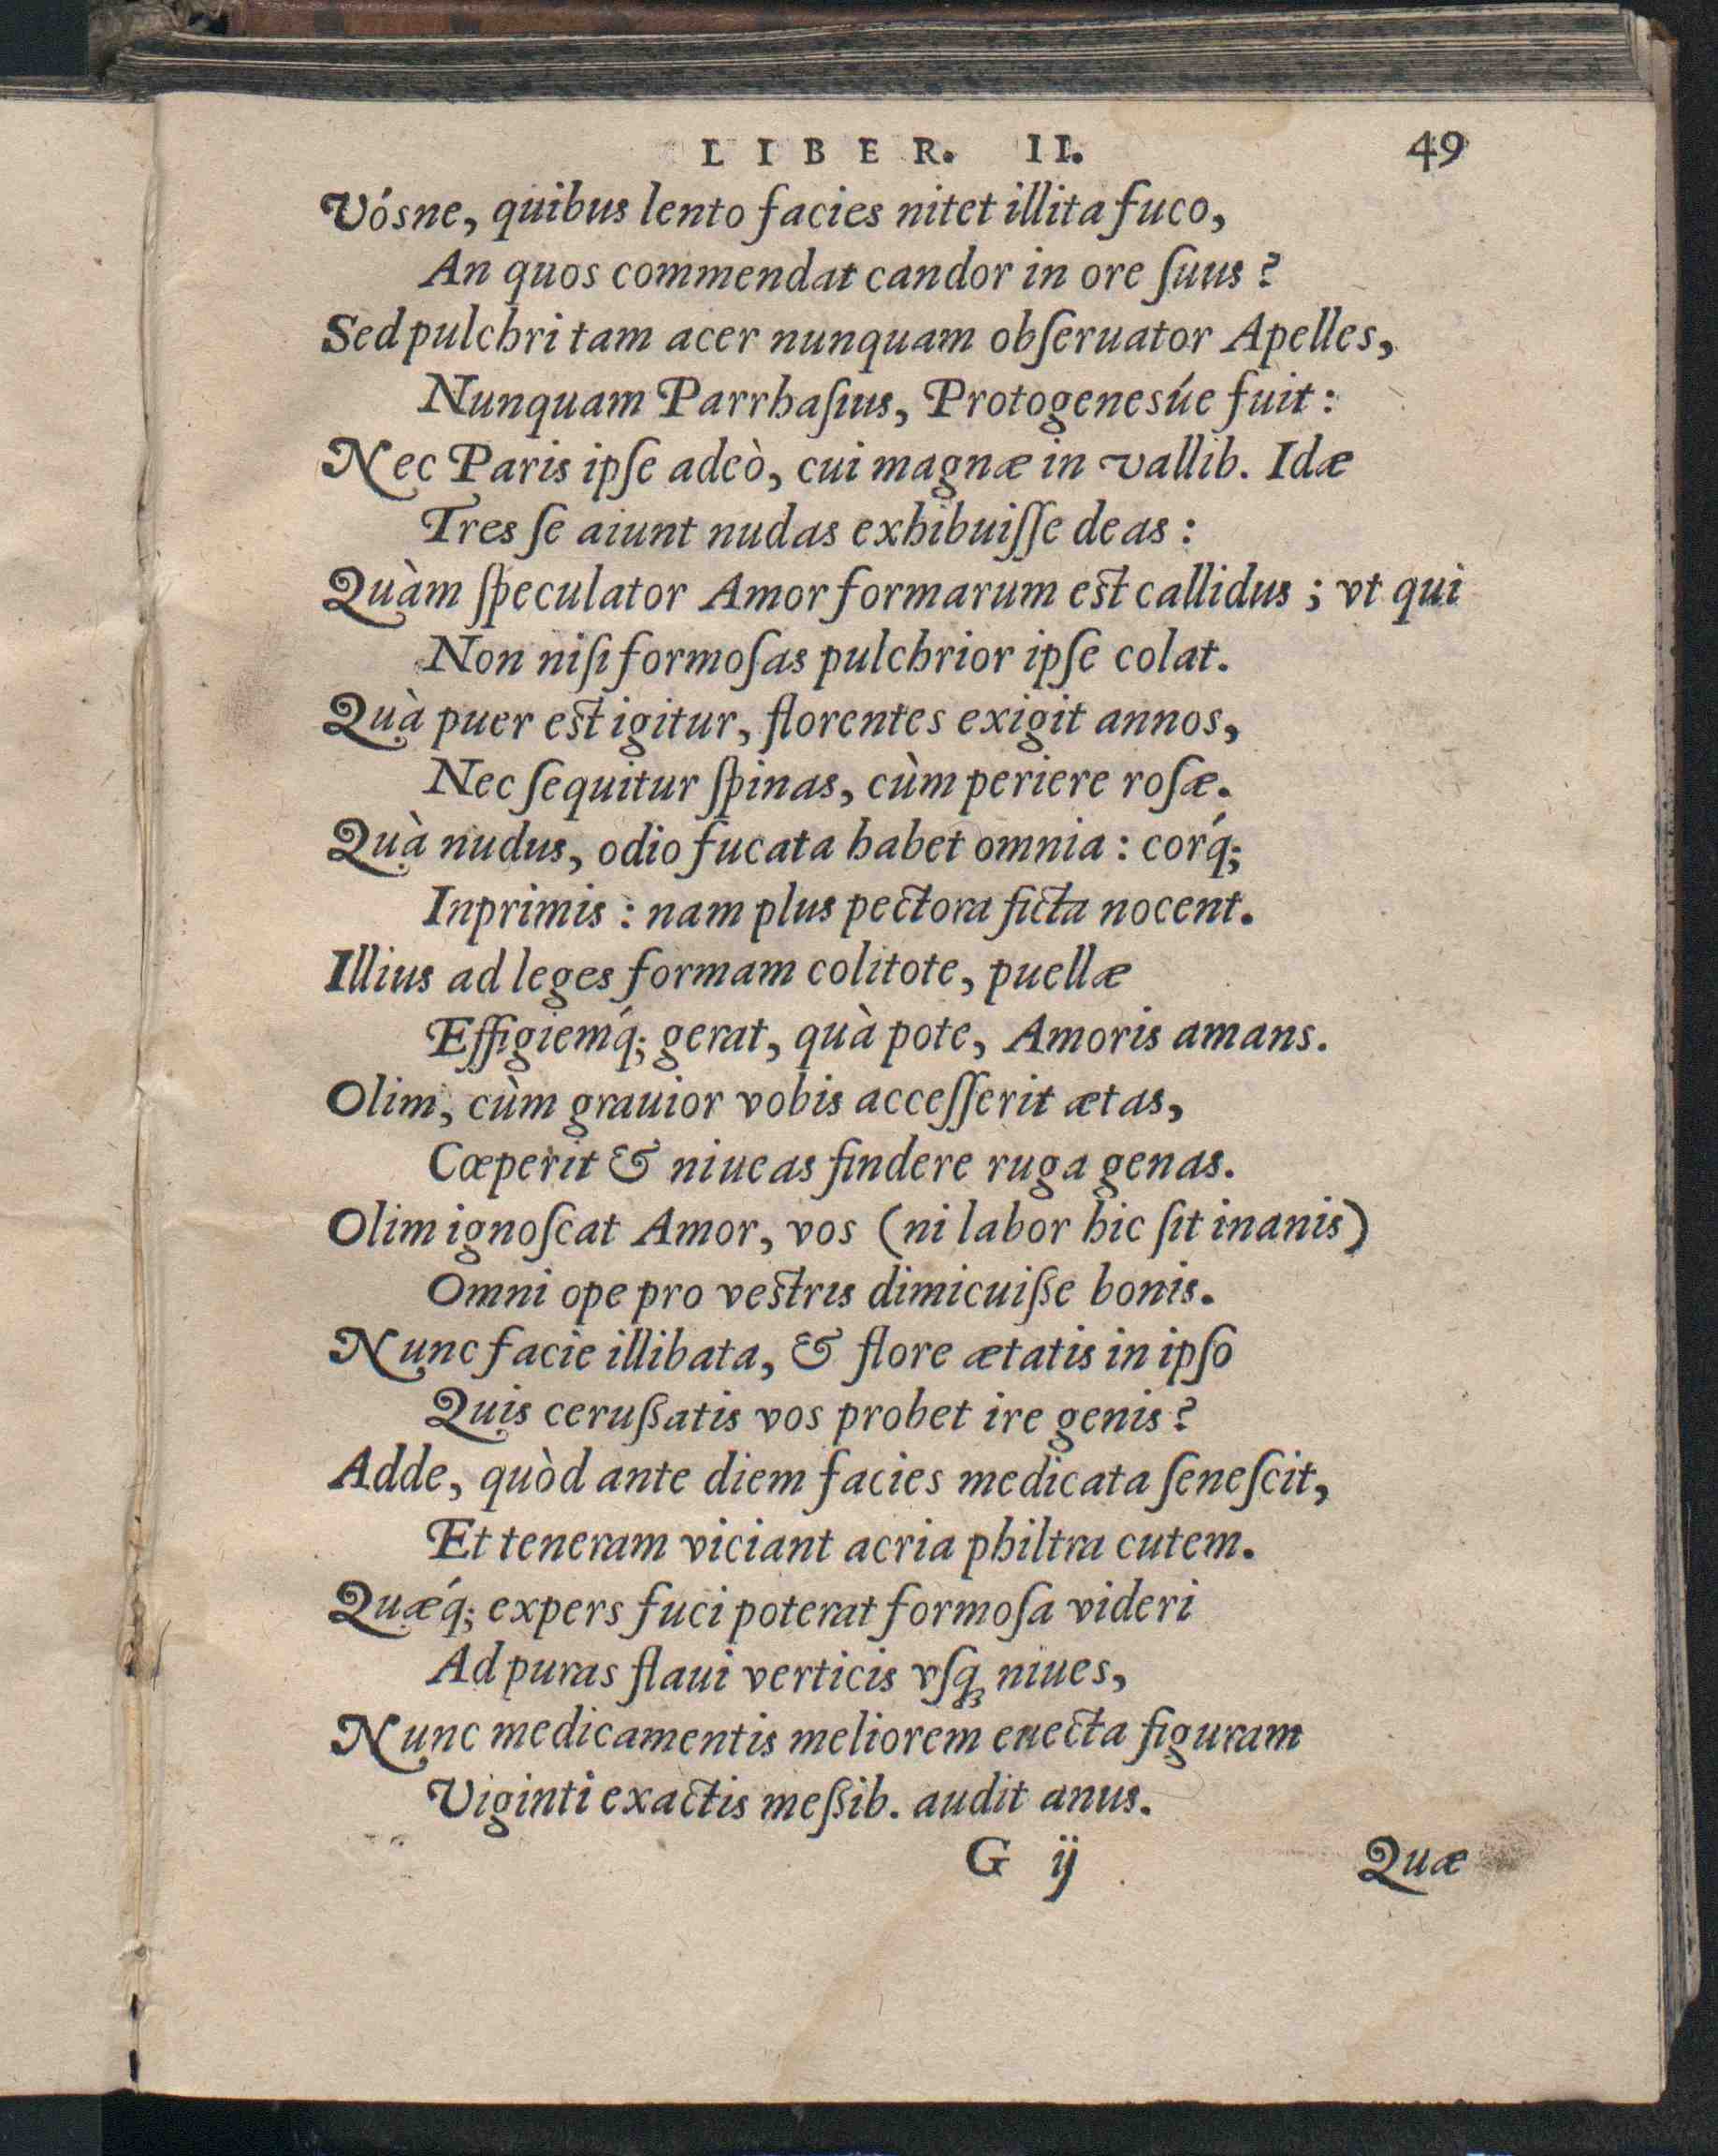 LIBER. II. 49
Vósne, quibus lento facies nitet illita fuco,
An quos commendat candor in ore ſuus?
Sed pulchri tam acer nunquam obſeruator Apelles,
Nunquam Parrhaſius, Protogenesúe fuit:
Nec Paris ipſe adeò, cui magnæ in vallib. Idæ
Tres ſe aiunt nudas exhibuiſſe deas:
Quàm ſpeculator Amor formarum est callidus; vt qui
Non niſi formoſas pulchrior ipſe colat.
Quà puer est igitur, florentes exigit annos,
Nec ſequitur ſpinas, cùm periere roſæ.
Quà nudus, odio fucata habet omnia: corq́;
Inprimis: nam plus pectora ficta nocent.
Illius ad leges formam colitote, puellæ
Effigiemq́; gerat, quà pote, Amoris amans.
Olim, cùm grauior vobis acceſſerit ætas,
Cœperit & niueas findere ruga genas.
Olim ignoſcat Amor, vos (ni labor hic ſit inanis)
Omni ope pro vestris dimicuiße bonis.
Nunc facie illibata, & flore ætatis in ipſo
Quis cerußatis vos probet ire genis?
Adde, quòd ante diem facies medicata ſeneſcit,
Et teneram viciant acria philtra cutem.
Quæq́; expers fuci poterat formoſa videri
Ad puras flaui verticis vſqꝫ niues,
Nunc medicamentis meliorem enecta figuram
Viginti exactis meßib. audit anus.
G ij Quæ